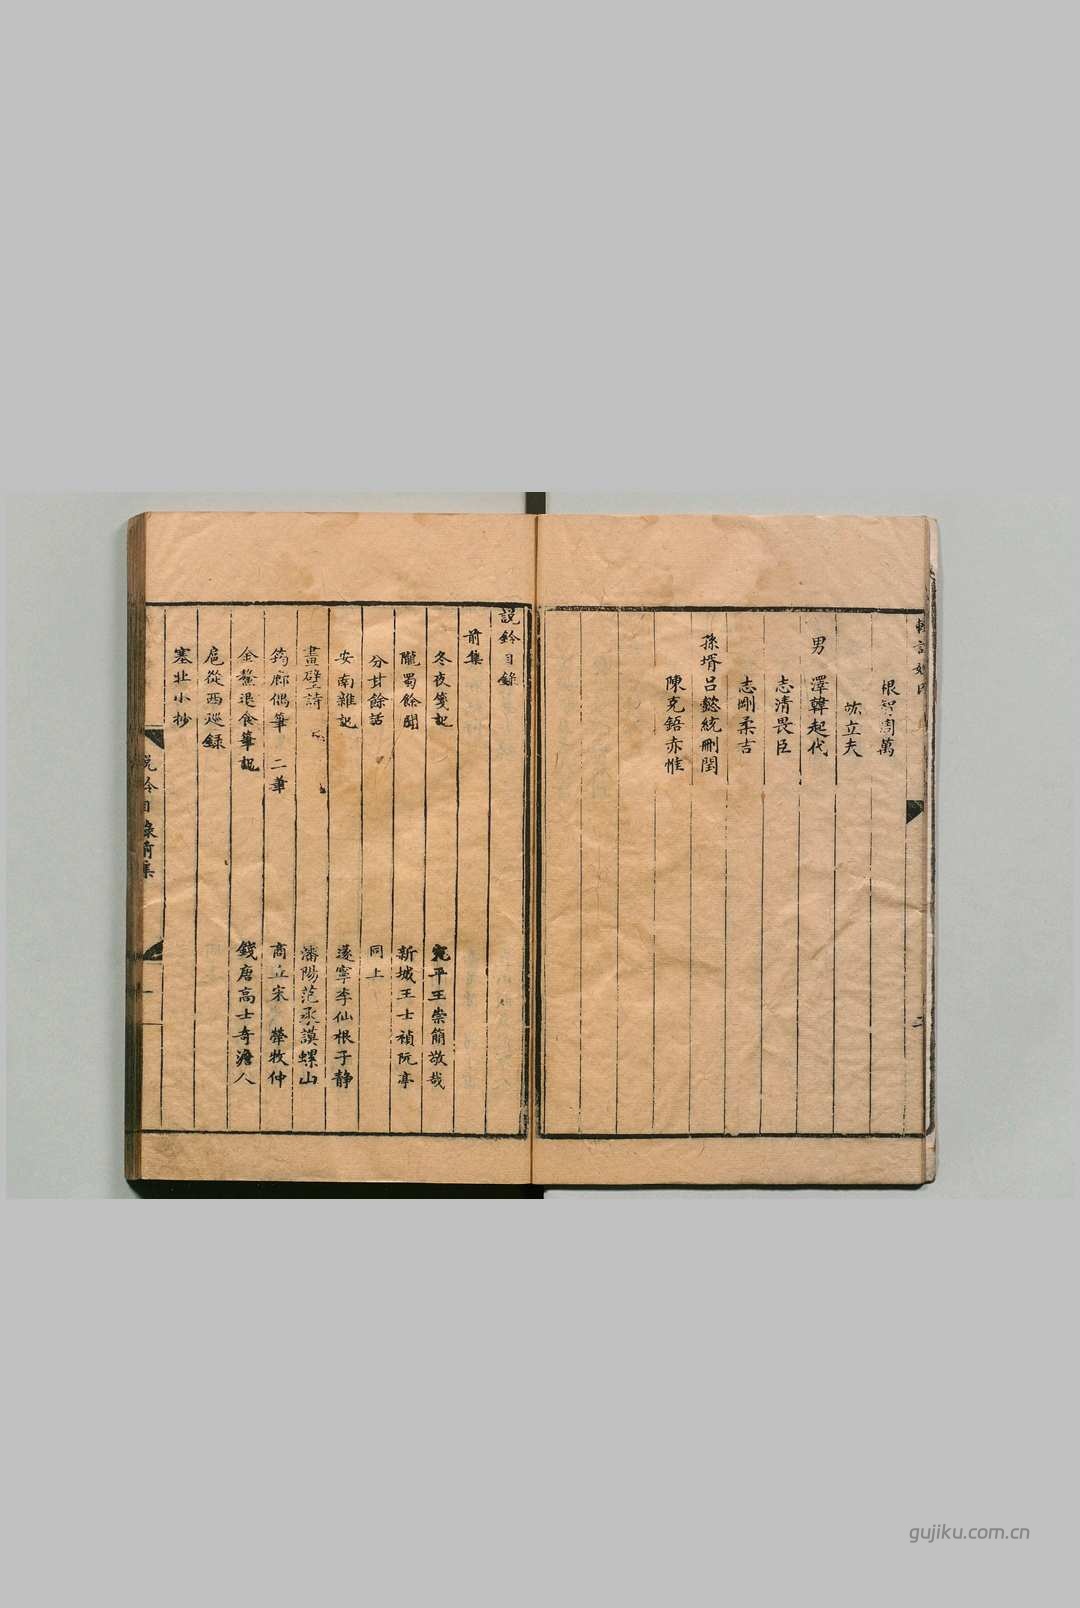 根智周萬
立夫
男 澤韓起代
志清畏臣
志剛柔吉
孫壻呂懿統刪閏
陳克鋙赤惟
說鈴目錄
前集
冬夜箋記 宛平王崇簡敬哉
隴蜀餘聞 新城王士禎阮亭
分甘餘話 同上
安南雜記 遂寧李仙根子靜
畫壁詩 瀋陽范承謨螺山
筠廊偶筆 二筆 商丘宋犖牧仲
金鰲退食筆記 錢唐高士奇澹人
扈從西巡錄
塞北小抄
說鈴目錄前集
gujiku.com.cn